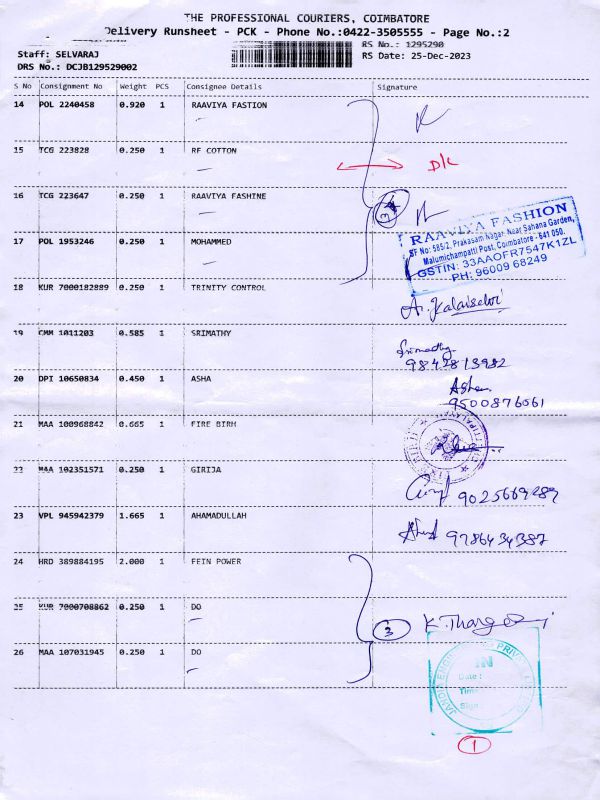 THE PROFESSIONAL COURIERS, COIMBATORE
Delivery Runsheet - PCK - Phone No.:0422-3505555 - Page No.:2
Staff: SELVARAJ
RS No.: 1295290
DRS No.: DCJB129529002
RS Date: 25-Dec-2023
S No Consignment No Weight PCS Consignee Details Signature
14 POL 2240458 0.920 1 RAAVIYA FASTION
15 TCG 223828 0.250 1 RF COTTON D/L
16 TCG 223647 0.250 1 RAAVIYA FASHINE
RAAVIYA FASHION
SF No: 585/2, Prakasam Nagar, Near Sahana Garden,
Malumichampatti Post, Coimbatore - 641 050.
GSTIN: 33AAOFR7547K1ZL
PH: 96009 68249
17 POL 1953246 0.250 1 MOHAMMED
18 KUR 7000182889 0.250 1 TRINITY CONTROL
A. Kalaiselvi
19 CMM 1011203 0.585 1 SRIMATHY
Srimathy
9842813982
20 DPI 10650834 0.450 1 ASHA
Asha
9500876061
21 MAA 100968842 0.665 1 FIRE BIRH
22 MAA 102351571 0.250 1 GIRIJA
9025669289
23 VPL 945942379 1.665 1 AHAMADULLAH
9786434387
24 HRD 389884195 2.000 1 FEIN POWER
25 KUR 7000708862 0.250 1 DO
3
26 MAA 107031945 0.250 1 DO
IN
Date :
Time
Sign
1